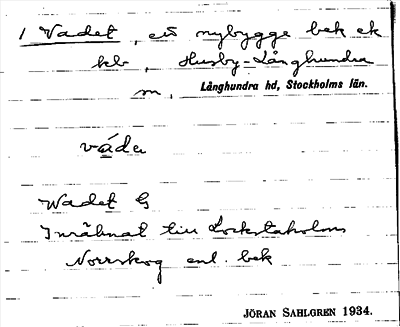 1 Vadet, ett nybygge bek ek
kb, Husby-Långhundra
sn, Långhundra hd, Stockholms län.
vádu
Wadet G
Inräknat till Lockstaholms
Norrskog enl. bek
JÖRAN SAHLGREN 1934.